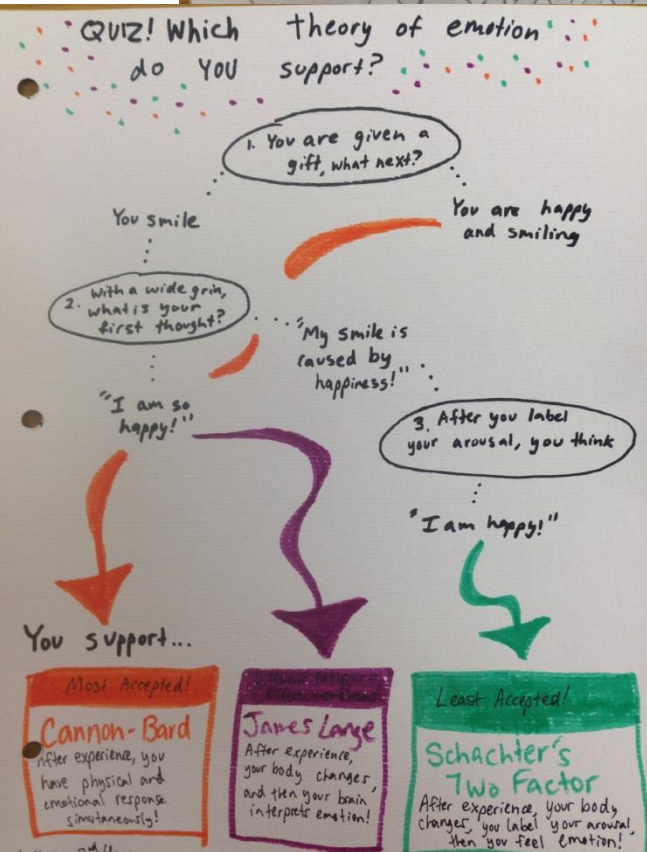 QUIZ! Which theory of emotion
do YOU support?
1. You are given a
gift, what next?
You smile
You are happy
and smiling
2. With a wide grin,
what is your
first thought?
"My smile is
caused by
happiness!"
"I am so
happy!"
3. After you label
your arousal, you think
"I am happy!"
You support...
Most Accepted!
Cannon-Bard
After experience, you
have physical and
emotional response
simutaneously!
James Lange
After experience,
your body changes,
and then your brain
interprets emotion!
Least Accepted!
Schachter's
Two Factor
After experience, your body
changes, you label your arousal,
then you feel emotion!